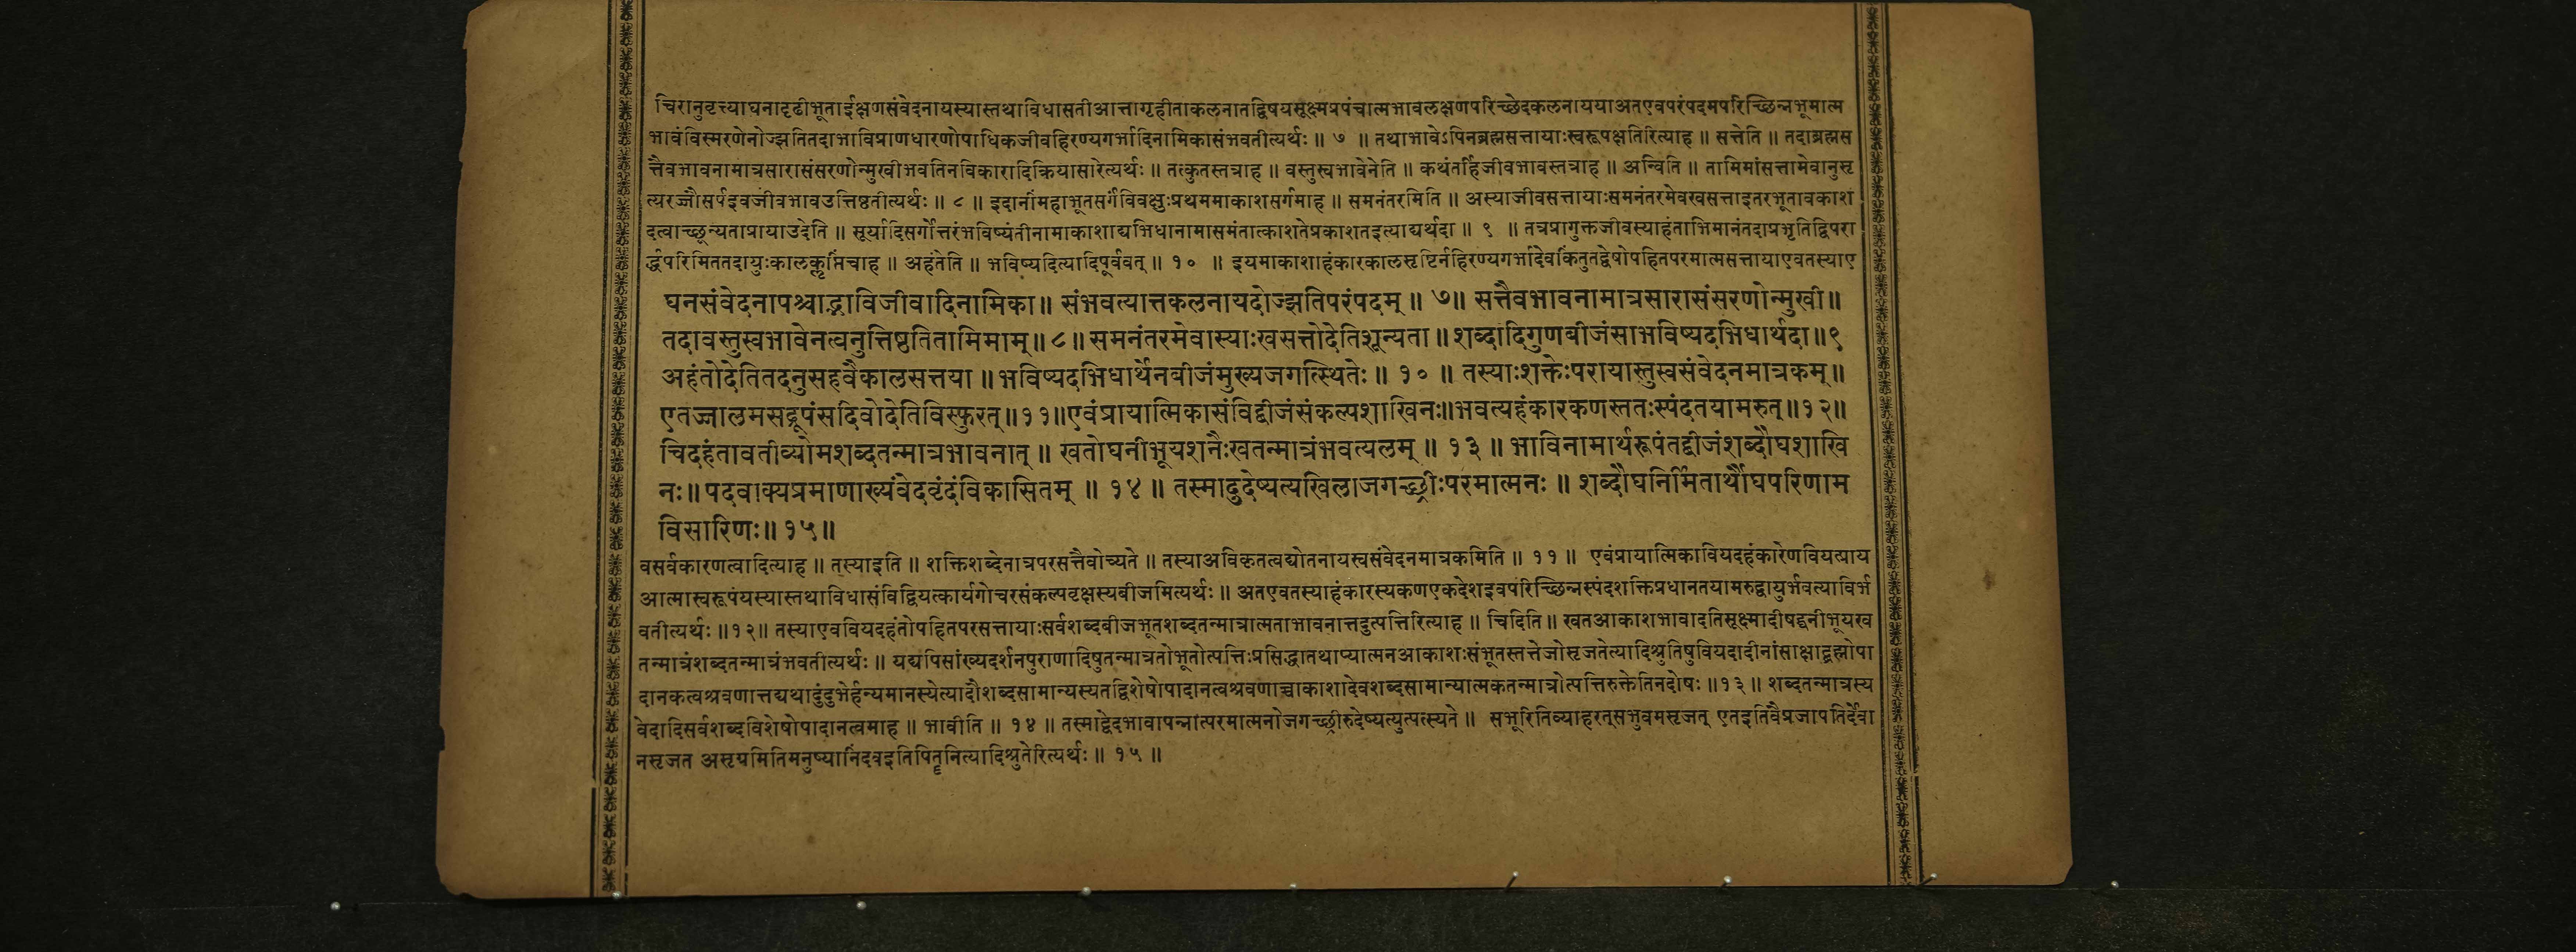 चिरानुवृत्त्याघनादृढीभूताईक्षणसंवेदनायस्यास्तथाविधासतीआत्तागृहीताकलनातद्विषयसूक्ष्मप्रपंचात्मभावलक्षणपरिच्छेदकलनाययाअतएवपरंपदमपरिच्छिन्नभूमात्म
भावंविस्मरणेनोज्झतितदाभाविप्राणधारणोपाधिकजीवहिरण्यगर्भादिनामिकासंभवतीत्यर्थः ॥ ७ ॥ तथाभावेऽपिनब्रह्मसत्तायाःस्वरूपक्षतिरित्याह ॥ सत्तेति ॥ तदाब्रह्मस
त्तैवभावनामात्रसारासंसरणोन्मुखीभवतिनविकारादिक्रियासारेत्यर्थः ॥ तत्कुतस्तत्राह ॥ वस्तुस्वभावेनेति ॥ कथंतर्हिजीवभावस्तत्राह ॥ अन्विति ॥ तामिमांसत्तामेवानुसृ
त्यरज्जौसर्पइवजीवभावउत्तिष्ठतीत्यर्थः ॥ ८ ॥ इदानींमहाभूतसर्गंविवक्षुःप्रथममाकाशसर्गमाह ॥ समनंतरमिति ॥ अस्याजीवसत्तायाःसमनंतरमेवखसत्ताइतरभूतावकाश
दत्वाच्छून्यताप्रायाउदेति ॥ सूर्यादिसर्गोत्तरंभविष्यंतीनामाकाशाद्यभिधानामासमंतात्काशतेप्रकाशतइत्याद्यर्थदा ॥ ९ ॥ तत्रप्रागुक्तजीवस्याहंताभिमानंतदाप्रभृतिद्विपरा
र्द्धपरिमिततदायुःकालक्लृप्तिंचाह ॥ अहंतेति ॥ भविष्यदित्यादिपूर्ववत् ॥ १० ॥ इयमाकाशाहंकारकालसृष्टिर्नहिरण्यगर्भादेवकिंतुतद्वेषोपहितपरमात्मसत्तायाएवतस्याए
घनसंवेदनापश्चाद्भाविजीवादिनामिका॥ संभवत्यात्तकलनायदोज्झतिपरंपदम् ॥ ७॥ सत्तैवभावनामात्रसारासंसरणोन्मुखी॥
तदावस्तुस्वभावेनत्वनुत्तिष्ठतितामिमाम्॥ ८॥ समनंतरमेवास्याःखसत्तोदेतिशून्यता॥ शब्दादिगुणबीजंसाभविष्यदभिधार्थदा॥९
अहंतोदेतितदनुसहवैकालसत्तया ॥ भविष्यदभिधार्थेनबीजंमुख्यजगत्स्थितेः॥ १० ॥ तस्याःशक्तेःपरायास्तुस्वसंवेदनमात्रकम्॥
एतज्जालमसद्रूपंसदिवोदेतिविस्फुरत्॥११॥एवंप्रायात्मिकासंविद्बीजंसंकल्पशाखिनः॥भवत्यहंकारकणस्ततःस्पंदतयामरुत्॥१२॥
चिदहंतावतीव्योमशब्दतन्मात्रभावनात् ॥ खतोघनीभूयशनैःखतन्मात्रंभवत्यलम् ॥ १३ ॥ भाविनामार्थरूपंतद्बीजंशब्दौघशाखि
नः॥ पदवाक्यप्रमाणाख्यंवेदवृंदंविकासितम् ॥ १४ ॥ तस्मादुदेष्यत्यखिलाजगच्छ्रीःपरमात्मनः ॥ शब्दौघनिर्मितार्थौघपरिणाम
विसारिणः॥ १५॥
वसर्वकारणत्वादित्याह ॥ तस्याइति ॥ शक्तिशब्देनात्रपरसत्तैवोच्यते ॥ तस्याअविकृतत्वद्योतनायस्वसंवेदनमात्रकमिति ॥ ११ ॥ एवंप्रायात्मिकावियदहंकारेणवियत्प्राय
आत्मास्वरूपंयस्यास्तथाविधासंविद्वियत्कार्यगोचरसंकल्पवृक्षस्यबीजमित्यर्थः ॥ अतएवतस्याहंकारस्यकणएकदेशइवपरिच्छिन्नस्पंदशक्तिप्रधानतयामरुद्वायुर्भवत्याविर्भ
वतीत्यर्थः ॥१२॥ तस्याएववियदहंतोपहितपरसत्तायाःसर्वशब्दबीजभूतशब्दतन्मात्रात्मताभावनात्तदुत्पत्तिरित्याह ॥ चिदिति ॥ खतआकाशभावादतिसूक्ष्मादीषद्घनीभूयख
तन्मात्रंशब्दतन्मात्रंभवतीत्यर्थः ॥ यद्यपिसांख्यदर्शनपुराणादिषुतन्मात्रतोभूतोत्पत्तिःप्रसिद्धातथाप्यात्मनआकाशःसंभूतस्तत्तेजोसृजतेत्यादिश्रुतिषुवियदादीनांसाक्षाद्ब्रह्मोपा
दानकत्वश्रवणात्तद्यथादुंदुभेर्हन्यमानस्येत्यादौशब्दसामान्यस्यतद्विशेषोपादानत्वश्रवणाच्चाकाशादेवशब्दसामान्यात्मकतन्मात्रोत्पत्तिरुक्तेतिनदोषः ॥१३॥ शब्दतन्मात्रस्य
वेदादिसर्वशब्दविशेषोपादानत्वमाह ॥ भावीति ॥ १४ ॥ तस्माद्वेदभावापन्नात्परमात्मनोजगच्छ्रीरुदेष्यत्युत्पत्स्यते ॥ सभूरितिव्याहरत्सभुवमसृजत् एतइतिवैप्रजापतिर्देवा
नसृजत असृग्रमितिमनुष्यानिंदवइतिपितॄनित्यादिश्रुतेरित्यर्थः ॥ १५ ॥